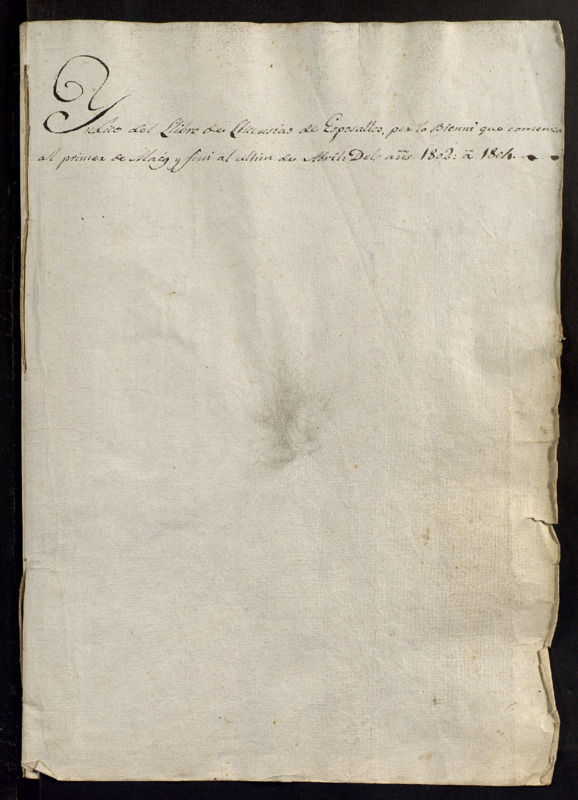 Yndice del Llibre de Llicensias de Esposalles, per lo Bienni que comensa
al primer de Maig y fini al ultim de Abril: Dels añs 1802: â 1804.